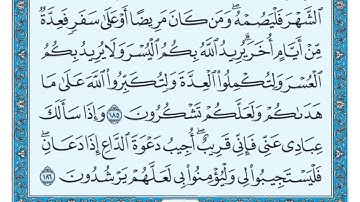 ٱلشَّهْرَ فَلْيَصُمْهُ ۖ وَمَن كَانَ مَرِيضًا أَوْ عَلَىٰ سَفَرٍ فَعِدَّةٌ
مِّنْ أَيَّامٍ أُخَرَ ۗ يُرِيدُ ٱللَّهُ بِكُمُ ٱلْيُسْرَ وَلَا يُرِيدُ بِكُمُ
ٱلْعُسْرَ وَلِتُكْمِلُوا۟ ٱلْعِدَّةَ وَلِتُكَبِّرُوا۟ ٱللَّهَ عَلَىٰ مَا
هَدَىٰكُمْ وَلَعَلَّكُمْ تَشْكُرُونَ ١٨٥ وَإِذَا سَأَلَكَ
عِبَادِى عَنِّى فَإِنِّى قَرِيبٌ ۖ أُجِيبُ دَعْوَةَ ٱلدَّاعِ إِذَا دَعَانِ ۖ
فَلْيَسْتَجِيبُوا۟ لِى وَلْيُؤْمِنُوا۟ بِى لَعَلَّهُمْ يَرْشُدُونَ ١٨٦